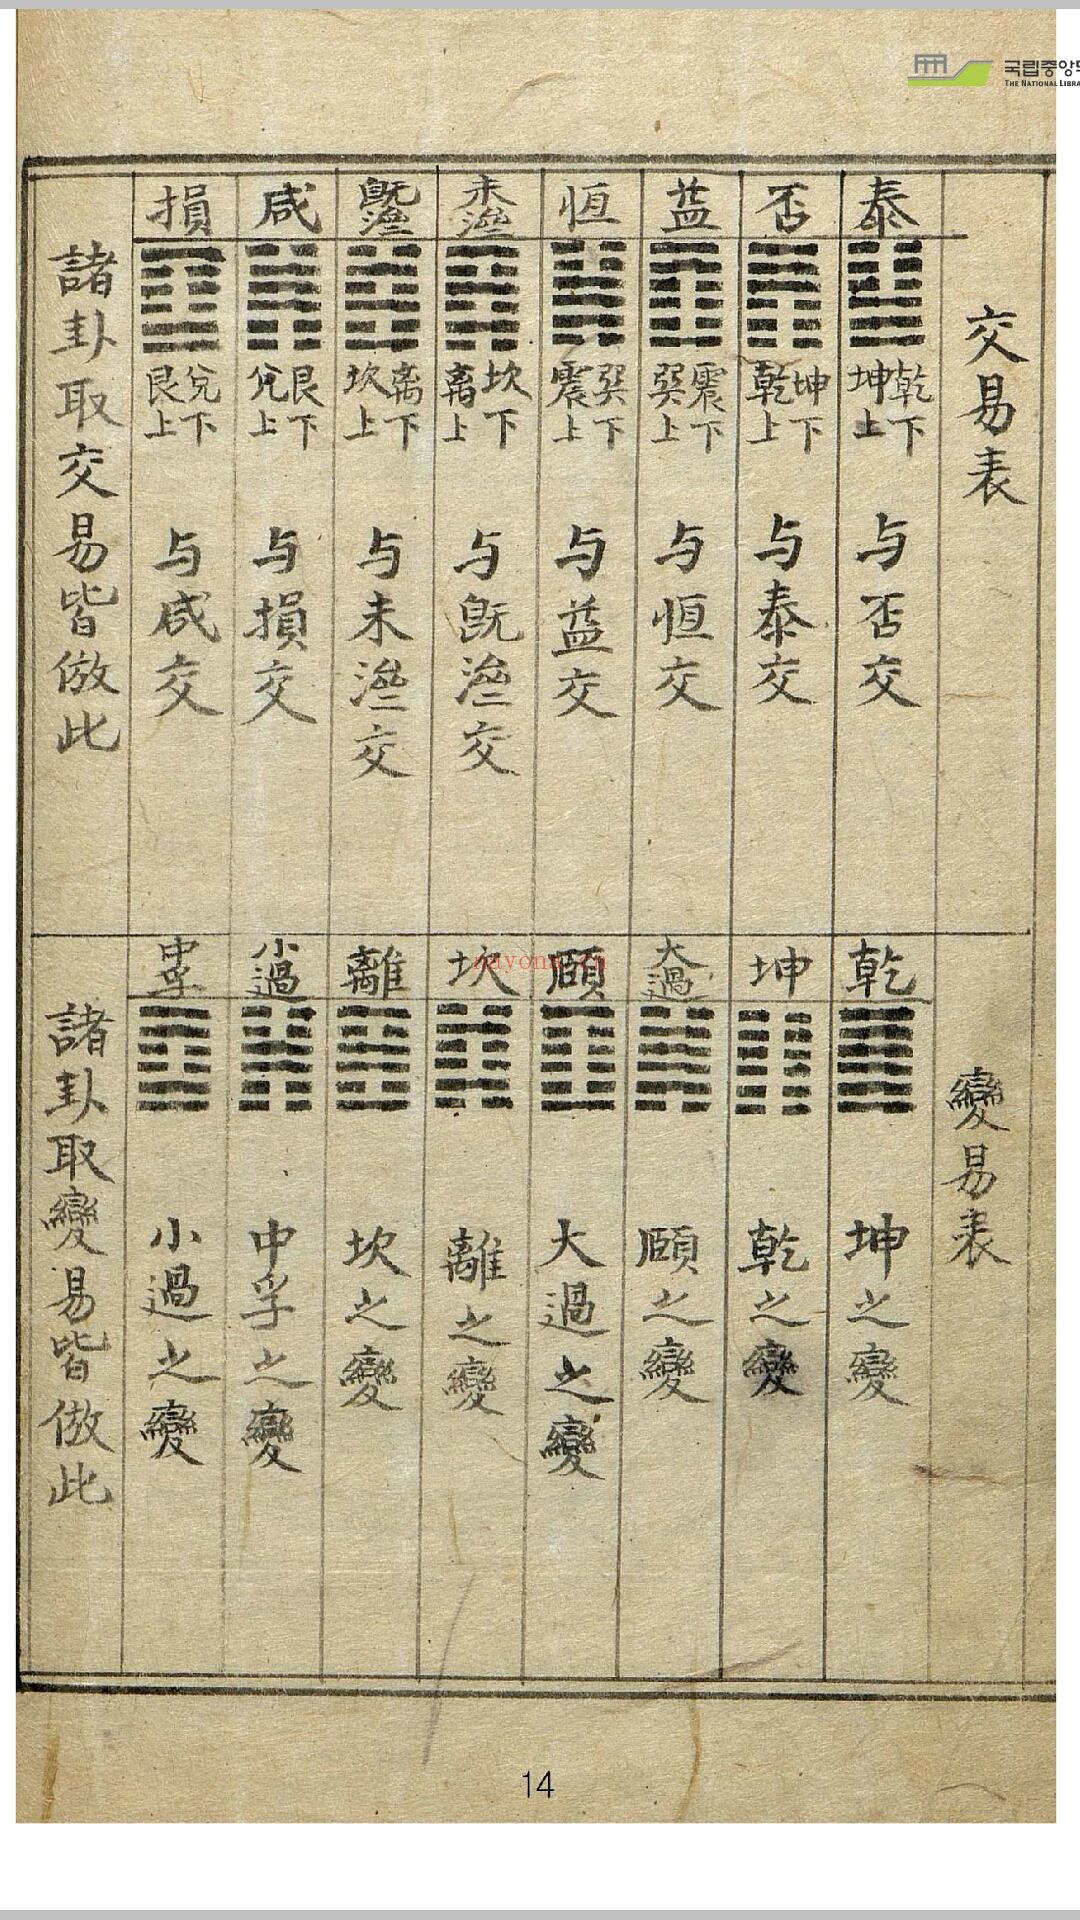 국립중앙
THE NATIONAL LIBRA
交易表
泰
坤上 乾下
与否交
否
乾上 坤下
与泰交
益
巽上 震下
与恒交
恒
震上 巽下
与益交
未濟
离上 坎下
与旣濟交
旣濟
坎上 离下
与未濟交
咸
兌上 艮下
与損交
損
艮上 兌下
与咸交
諸卦取交易皆倣此
變易表
乾
坤之變
坤
乾之變
大過
頤之變
頤
大過之變
坎
離之變
離
坎之變
小過
中孚之變
中孚
小過之變
諸卦取變易皆倣此
14